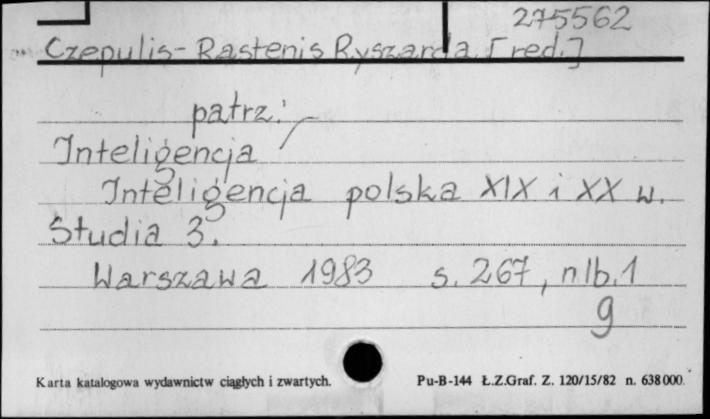 275562
Czepulis-Rastenis Ryszarda [red.]
patrz:
Inteligencja
Inteligencja polska XIX i XX w.
Studia 3.
Warszawa 1983 s. 267, nlb. 1
g
Karta katalogowa wydawnictw ciągłych i zwartych. Pu-B-144 Ł.Z.Graf. Z. 120/15/82 n. 638000.